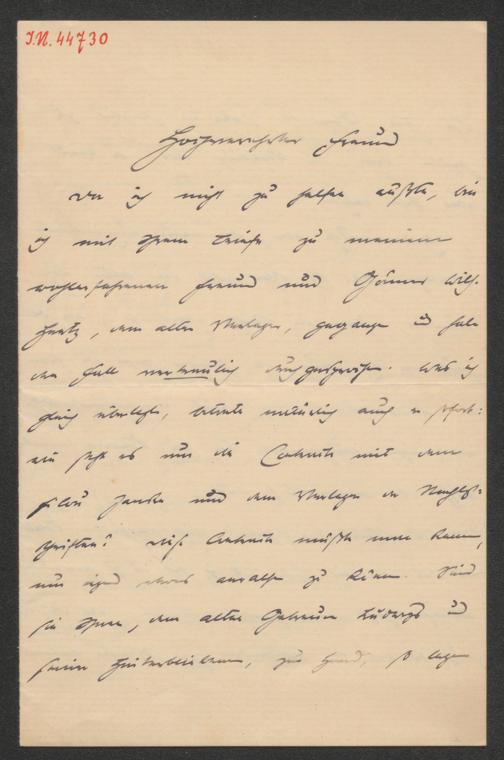 I.N. 44730
Hochverehrter Freund
Da ich nicht zu helfen wußte, bin
ich mit Ihrem Briefe zu meinem
wohlerfahrenen Freund und Gönner Wilh.
Hertz, dem alten Verleger, gegangen und habe
den Fall vertraulich durchgesprochen. Was ich
gleich überlegte, betonte natürlich auch er sofort:
wie steht es um die Contracte mit dem
Filou und dem Verleger der Nachlaß-
schriften? Diese Contracte müßte man kennen,
um irgend etwas anrathen zu können. Sind
sie Ihnen, dem alten Ludwigs und
seiner Hinterbliebenen, zur Hand, so legen